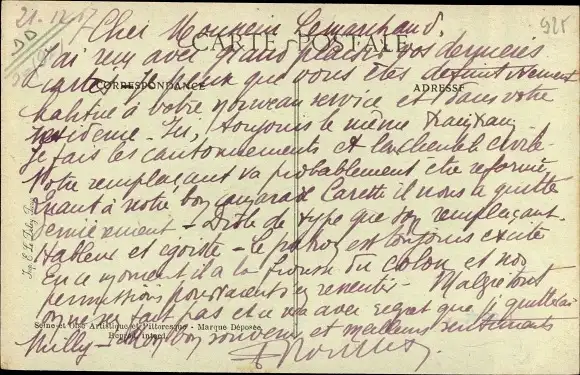 21-12-17
925
Cher Monsieur Lemarchand,
CARTE POSTALE
J'ai reçu avec grand plaisir vos dernières
cartes. Je veux que vous êtes définitivement
CORRESPONDANCE
ADRESSE
habitué à votre nouveau service et dans votre
résidence. Ici, toujours le même
Je fais les cantonnements et la clientèle civile.
Votre remplaçant va probablement être réformé
Quant à notre bon camarade Carette il nous a quitté
dernièrement - Drôle de type que son remplaçant.
Hableur et égoïste - Le patron est toujours excité
En ce moment il a la frousse du colon et nos
permissions pourraient s'en ressentir. Malgré tout
on ne s'en fait pas et c'est avec regret que je quitterai
Seine et Oise Artistique et Pittoresque - Marque Déposée
Milly - bon souvenir et meilleurs sentiments
Imp. E. Le Deley, Paris